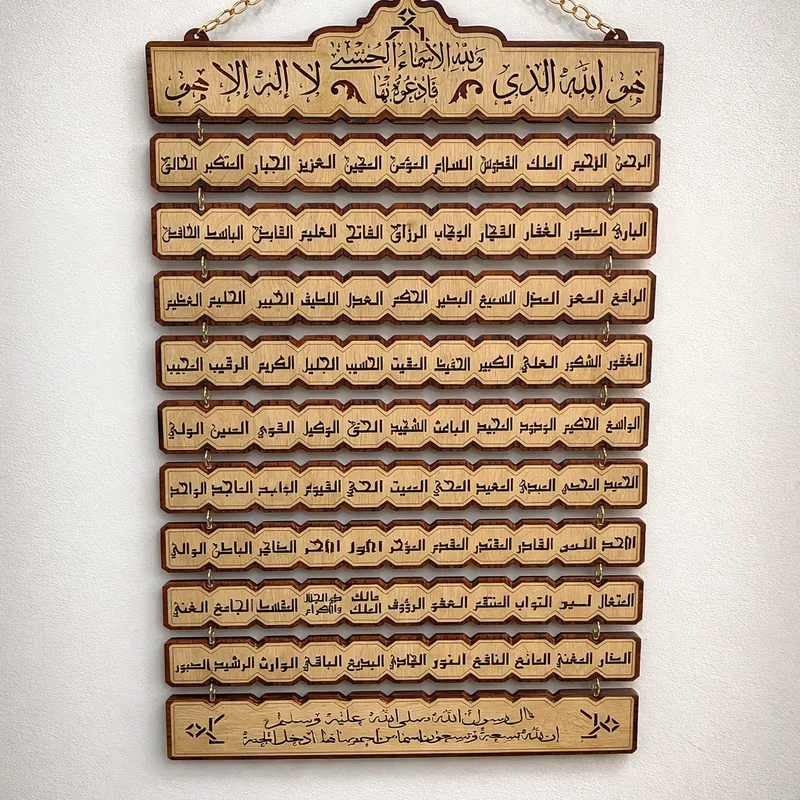 هو الله الذي
ولله الأسماء الحسنى
فادعوه بها
لا إله إلا هو
الرحمن الرحيم الملك القدوس السلام المؤمن المهيمن العزيز الجبار المتكبر الخالق
البارئ المصور الغفار القهار الوهاب الرزاق الفاتح العليم القابض الباسط الخافض
الرافع المعز المذل السميع البصير الحكم العدل اللطيف الخبير الحليم العظيم
الغفور الشكور العلي الكبير الحفيظ المقيت الحسيب الجليل الكريم الرقيب المجيب
الواسع الحكيم الودود المجيد الباعث الشهيد الحق الوكيل القوي المتين الولي
الحميد المحصي المبدئ المعيد المحي المميت الحي القيوم الواجد الماجد الواحد
الاحد القادر المقتدر المقدم المؤخر الاول الاخر الظاهر الباطن الوالي
المتعال التواب المنتقم العفو الرؤوف مالك الملك ذو الجلال والاكرام المقسط الجامع الغني
الضار المغني المانع النافع النور الهادي البديع الباقي الوارث الرشيد الصبور
قال رسول الله صلى الله عليه وسلم
ان لله تسعة وتسعون اسما من احصاها ادخل الجنة